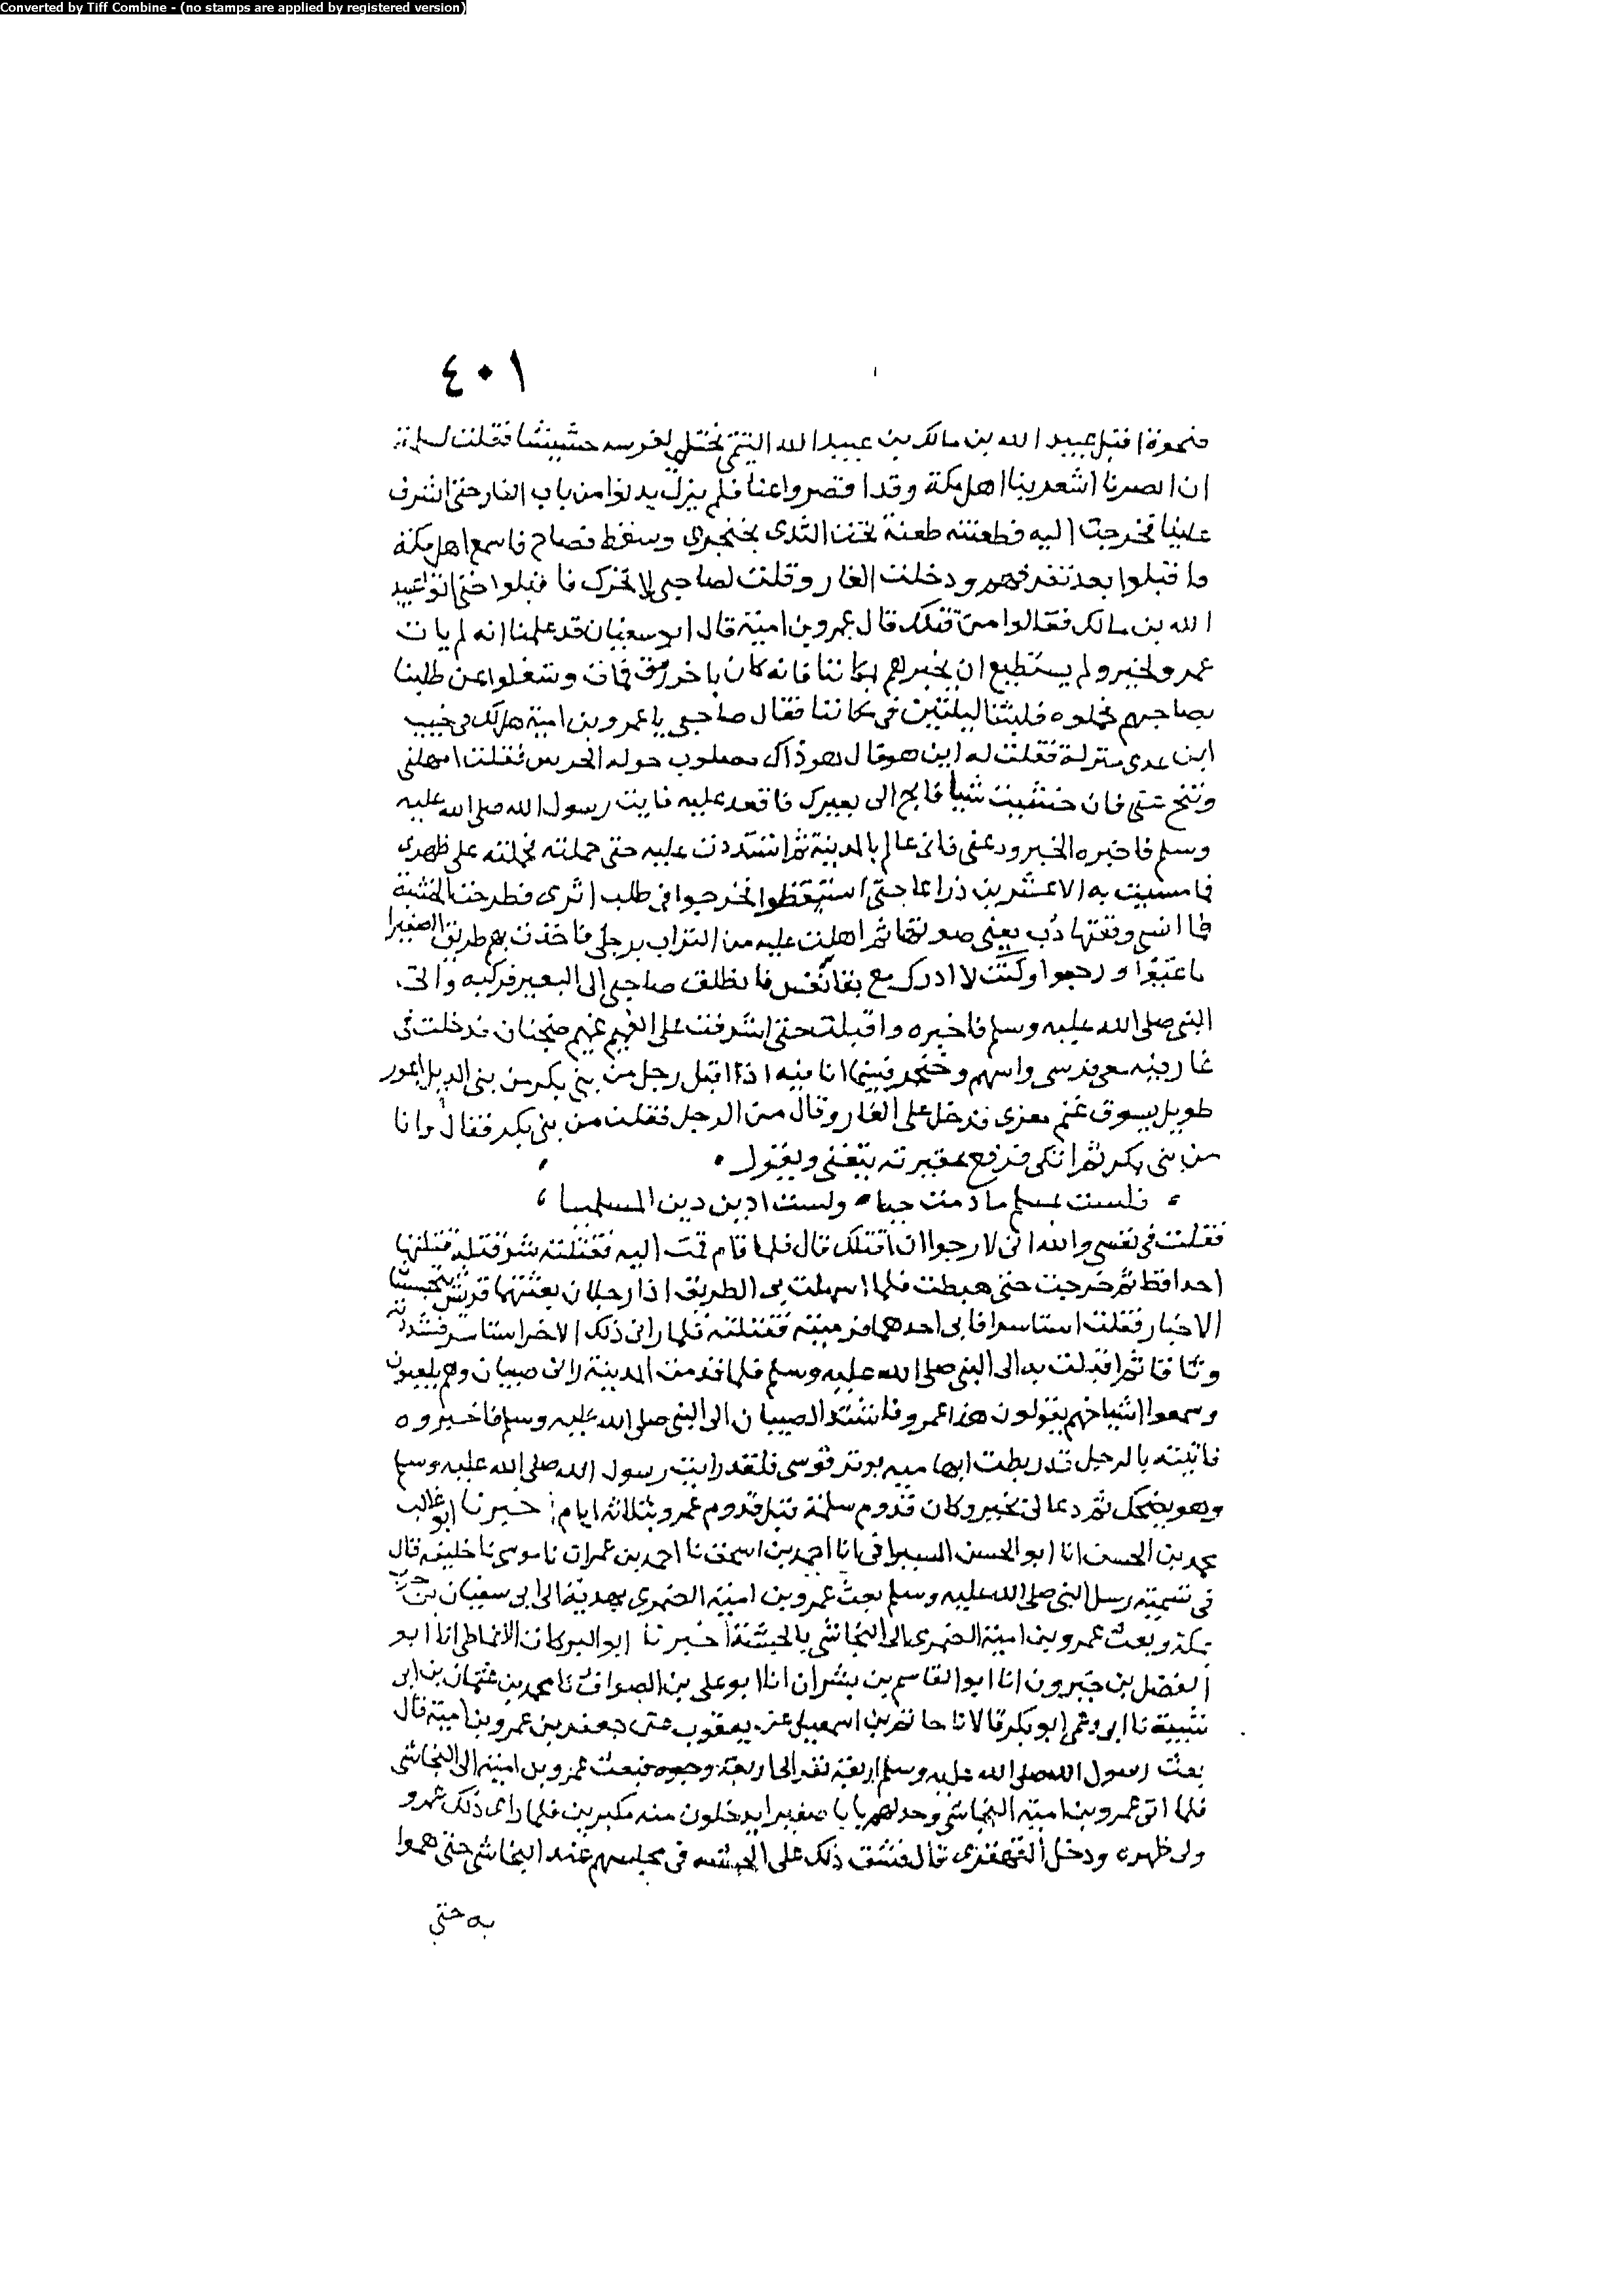 Converted by Tiff Combine - (no stamps are applied by registered version)
٤٠١
ضحوة اقبل عبيد الله بن مالك بن عبيد الله التيمي يختلي لفرسه حشيشا فقلت لسلمة
ان ابصرنا اشعر بنا اهل مكة وقد اقصروا عنا فلم يزل يدنوا من باب الغار حتى اشرف
علينا فخرجت اليه فطعنته طعنة تحت الثدي بخنجري وسقط فصاح فاسمع اهل مكة
فاقبلوا بعد تفرقهم ودخلت الغار وقلت لصاحبي لا تحرك فاقبلوا حتى اتوا عبيد
الله بن مالك فقالوا من قتلك قال عمرو بن امية قال ابو سفيان قد علمنا انه لم يات
عمرو لخير ولم يستطيع ان يخبرهم بمكاننا فانه كان باخر رمق فمات وشغلوا عن طلبنا
بصاحبهم فحملوه فلبثنا ليلتين في مكاننا فقال صاحبي يا عمرو بن امية هل لك في خبيب
ابن عدي ننزله فقلت له اين هو قال هو ذاك مصلوب حوله الحرس فقلت امهلني
وتنح عني فان خشيت شيا فانج الى بعيرك فاقعد عليه فايت رسول الله صلى الله عليه
وسلم فاخبره الخبر ودعني فاني عالم بالمدينة ثم اشتددت عليه حتى حملته فحملته على ظهري
فما مشيت به الا عشرين ذراعا حتى استيقظوا فخرجوا في طلب اثري فطرحت الخشبة
فما انسى وقعتها دب يعني صوتها ثم اهلت عليه من التراب برجلي فاخذت بهم طريق الصفيرا
فاعيوا ورجعوا وكنت لا ادرك مع بقا نفس فانطلق صاحبي الى البعير فركبه واتى
النبي صلى الله عليه وسلم فاخبره واقبلت حتى اشرفت على الغميم غميم ضجنان فدخلت في
غار فيه معي قوسي واسهم وخنجر فبينما انا فيه اذ اقبل رجل من بني بكر من بني الديل اعور
طويل يسوق غنم معزى فدخل على الغار وقال من الرجل فقلت من بني بكر فقال وانا
من بني بكر ثم اتكى فرفع عقيرته يتغنى ويقول
فلست بمسلم ما دمت حيا ولست ادين دين المسلمينا
فقلت في نفسي والله اني لارجوا ان اقتلك قال فلما قام قمت اليه فقتلته شر قتلة قتلتها
احدا قط ثم خرجت حتى هبطت فلما اسهلت في الطريق اذا رجلان بعثتهما قريش يتحسسان
الاخبار فقلت استاسرا فابى احدهما فرميته فقتلته فلما راى ذلك الاخر استاسر فشددته
وثاقا ثم اقبلت به الى النبي صلى الله عليه وسلم فلما قدمت المدينة راني صبيان وهم يلعبون
وسمعوا اشياخهم يقولون هذا عمرو فاشتد الصبيان الى النبي صلى الله عليه وسلم فاخبروه
فاتيته بالرجل قد ربطت ابهاميه بوتر قوسي فلقد رايت رسول الله صلى الله عليه وسلم
وهو يضحك ثم دعا لي بخير وكان قدوم سلمة قبل قدوم عمرو بثلاثة ايام اخبرنا ابو غالب
محمد بن الحسن انا ابو الحسن السيرافي انا احمد بن اسحق نا احمد بن عمران نا موسى نا خليفه قال
في تسمية رسل النبي صلى الله عليه وسلم بعث عمرو بن امية الضمري بهدية الى ابي سفيان بن حرب
بمكة وبعث عمرو بن امية الضمري الى النجاشي بالحبشة اخبرنا ابو البركات الانماطي انا ابو
الفضل بن خيرون انا ابو القاسم بن بشران انا ابو علي بن الصواف نا محمد بن عثمان بن ابي
شيبة نا ابي وعمي ابو بكر قالا نا حاتم بن اسمعيل عن يعقوب عن جعفر بن عمرو بن امية قال
بعث رسول الله صلى الله عليه وسلم اربعة نفر الى اربعة وجوه فبعث عمرو بن امية الى النجاشي
فلما اتى عمرو بن امية النجاشي وجد لهم بابا صغيرا يدخلون منه مكبرين فلما راى ذلك عمرو
ولى ظهره ودخل القهقرى قال فشق ذلك على الحبشه في مجلسهم عند النجاشي حتى هموا
به حتى